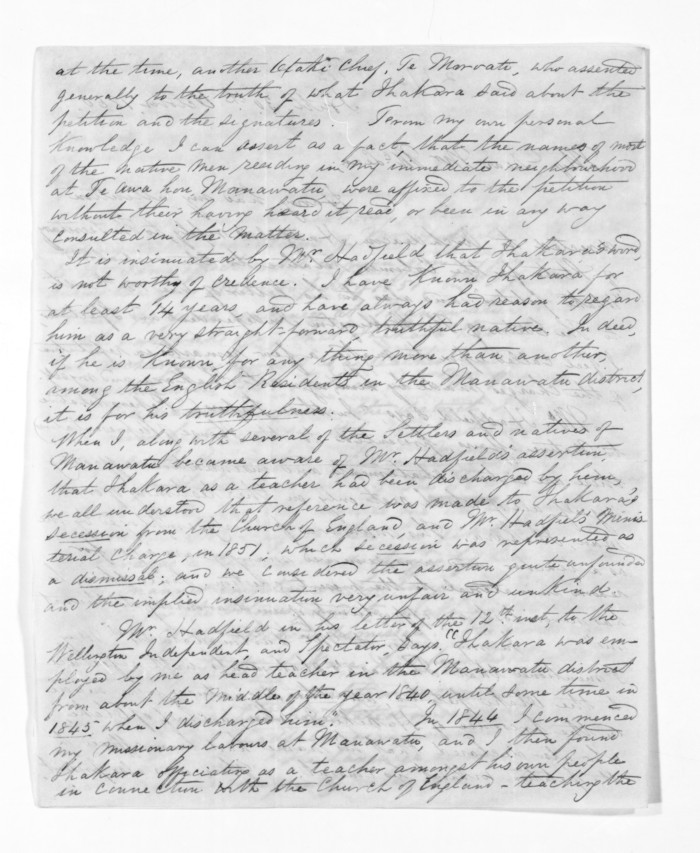 at the time, another Otaki Chief, Te Moroati, who assented
generally to the truth of what Ihakara said about the
petition and the signatures. From my own personal
Knowledge I can assert as a fact, that the names of most
of the native men residing in my immediate neighbourhood
at Te Awa hou Manawatu, were affixed to the petition
without their having heard it read, or been in any way
consulted in the matter.
It is insinuated by Mr. Hadfield that Ihakara's word,
is not worthy of credence. I have Known Ihakara for
at least 14 years and have always had reason to regard
him as a very straight-forward, truthful native. Indeed,
if he is Known, for any thing more than another,
among the English Residents in the Manawatu district,
it is for his truthfulness.
When I, along with several of the Settlers and natives of
Manawatu became aware of Mr. Hadfield's assertion
that Ihakara, as a teacher had been discharged by him,
we all understood that reference was made to Ihakara's
secession from the Church of England and Mr. Hadfiel's Minis
terial charge, in 1851; which secession was represented as
a dismissal; and we considered the assertion quite unfounded
and the implied insinuation very unfair and unkind.
Mr. Hadfield in his letter of the 12th. inst, to the
Wellington Independent, and Spectator, says. "Ihakara was em-
ployed by me as head teacher in the Manawatu district
from about the Middle of the year 1840 until some time in
1845 when I discharged him". In 1844 I commenced
my missionary labours at Manawatu, and I then found
Ihakara officiating as a teacher amongst his own people
in connection with the Church of England - teaching the